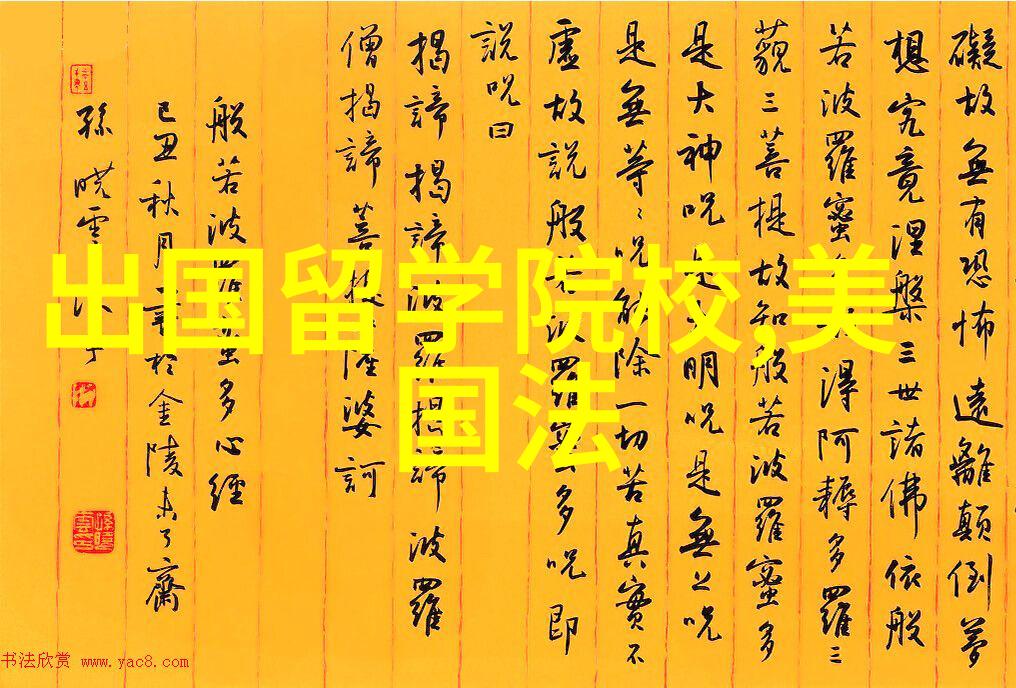 出国留学院校,美
国法
礙故無有恐怖遠離顛倒夢
想究竟涅槃三世諸佛依般
若波羅蜜得阿耨多羅三
藐三菩提故知般若波羅蜜多
是大神咒是大明咒是無上咒
是無等〻咒能除一切苦真實不
虛故說般若波羅蜜多咒即
說咒曰
揭諦揭諦波羅揭諦波羅
僧揭諦菩提薩婆訶
般若波羅蜜多心經
己丑秋月於金陵未了齋
孫曉雲
书法欣赏 www.yac8.com